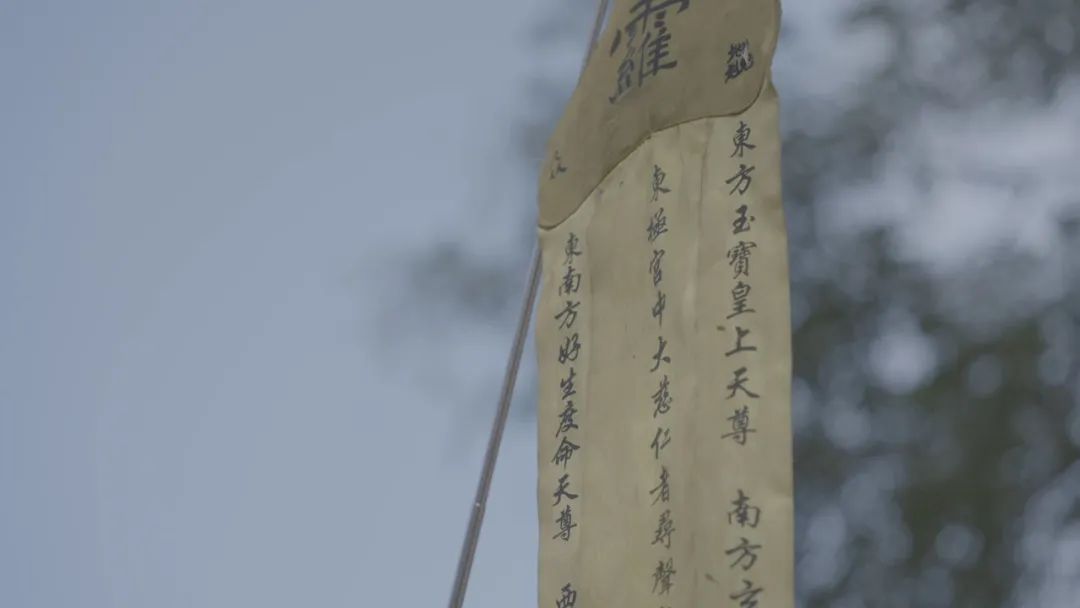 東方玉寶皇上天尊 南方玄
東極宮中大慈仁者尋聲
東南方好生度命天尊 西